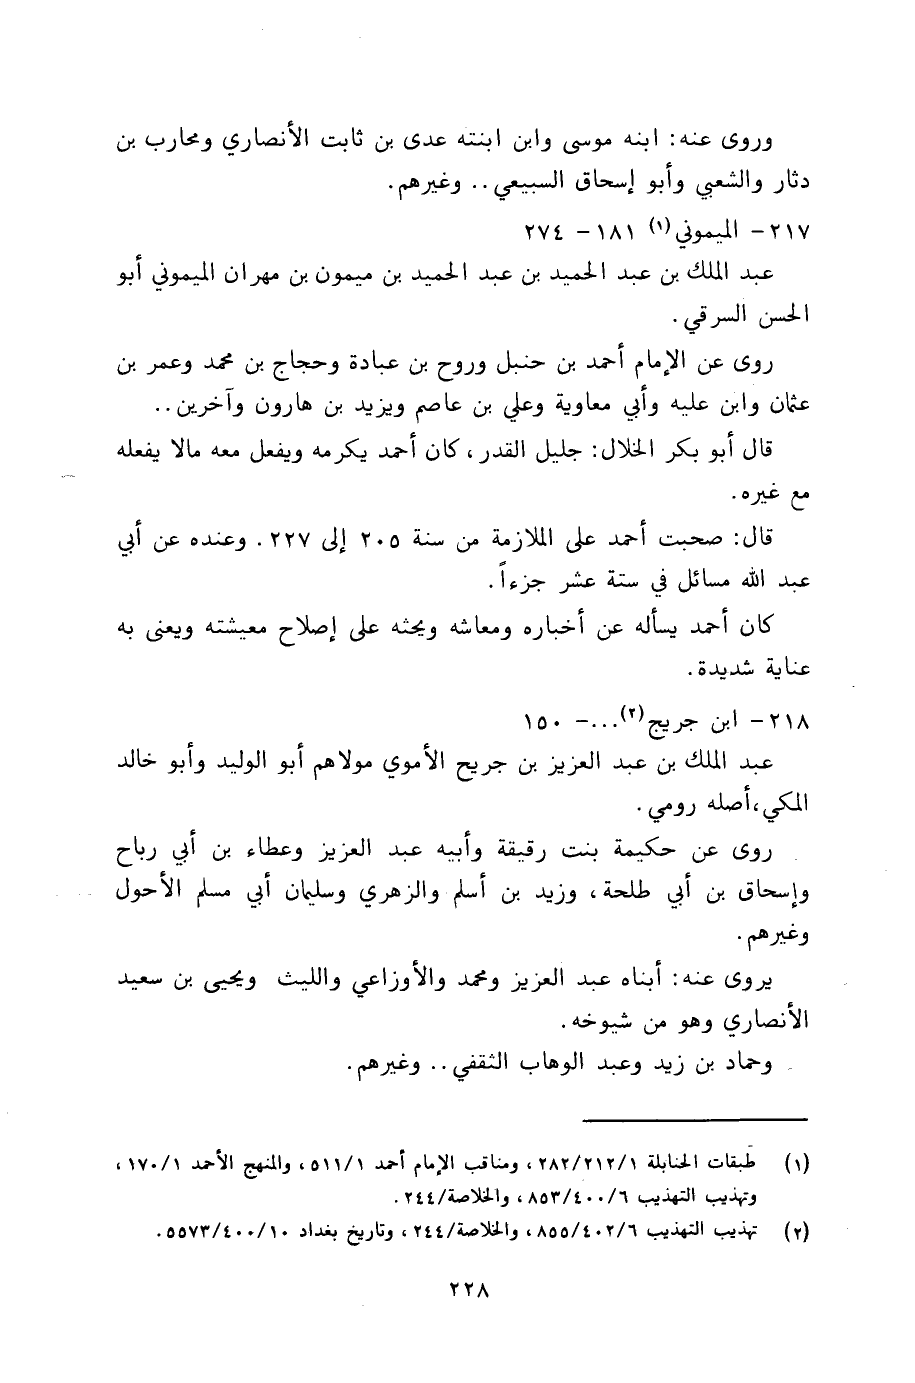 وروى عنه: ابنه موسى وابن ابنته عدى بن ثابت الأنصاري ومحارب بن
دثار والشعبي وأبو إسحاق السبيعي.. وغيرهم.
٢١٧- الميموني(١) ١٨١- ٢٧٤
عبد الملك بن عبد الحميد بن عبد الحميد بن ميمون بن مهران الميموني أبو
الحسن السرقي.
روى عن الإمام أحمد بن حنبل وروح بن عبادة وحجاج بن محمد وعمر بن
عثمان وابن عليه وأبي معاوية وعلي بن عاصم ويزيد بن هارون وآخرين..
قال أبو بكر الخلال: جليل القدر، كان أحمد يكرمه ويفعل معه مالا يفعله
مع غيره.
قال: صحبت أحمد على الملازمة من سنة ٢٠٥ إلى ٢٢٧. وعنده عن أبي
عبد الله مسائل في ستة عشر جزءاً.
كان أحمد يسأله عن أخباره ومعاشه ويحثه على إصلاح معيشته ويعنى به
عناية شديدة.
٢١٨- ابن جريج(٢)...- ١٥٠
عبد الملك بن عبد العزيز بن جريح الأموي مولاهم أبو الوليد وأبو خالد
المكي،أصله رومي.
روى عن حكيمة بنت رقيقة وأبيه عبد العزيز وعطاء بن أبي رباح
وإسحاق بن أبي طلحة، وزيد بن أسلم والزهري وسليمان أبي مسلم الأحول
وغيرهم.
يروى عنه: أبناه عبد العزيز ومحمد والأوزاعي والليث ويحيى بن سعيد
الأنصاري وهو من شيوخه.
وحماد بن زيد وعبد الوهاب الثقفي.. وغيرهم.
(١) طبقات الحنابلة ٢٨٢/٢١٢/١، ومناقب الإمام أحمد ٥١١/١، والمنهج الأحمد ١٧٠/١،
وتهذيب التهذيب ٨٥٣/٤٠٠/٦، والخلاصة/٢٤٤.
(٢) تهذيب التهذيب ٨٥٥/٤٠٢/٦، والخلاصة/٢٤٤، وتاريخ بغداد ٥٥٧٣/٤٠٠/١٠.
٢٢٨